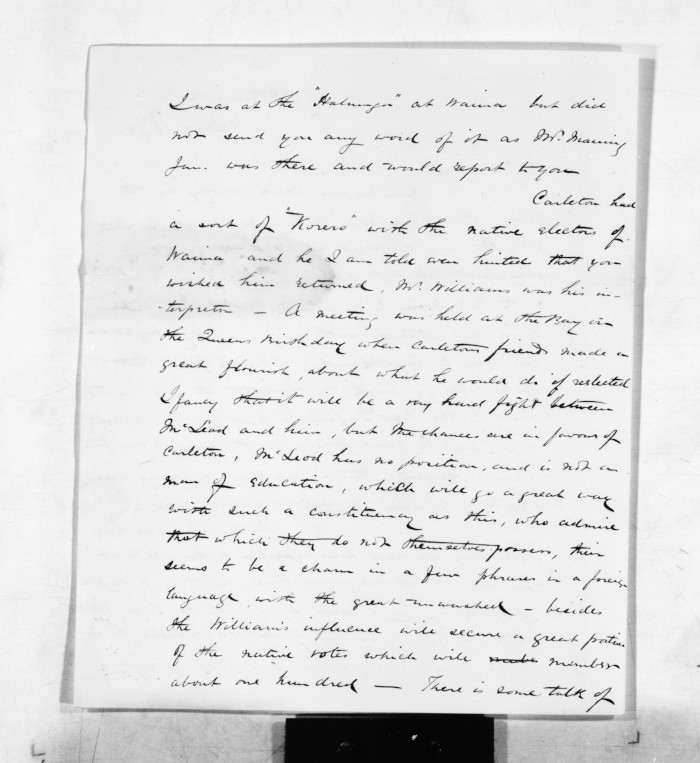 I was at the "Hahunga" at Waima but did
not send you any word of it as Mr. Maning
Jun. was there and would report to you
Carleton had
a sort of "Korero" with the native electors of
Waima and he I am told even hinted that you
wished him returned, Mr. Williams was his in-
-terpreter — A meeting was held at the Bay on
the Queens birthday when Carletons friends made a
great flourish, about what he would do if reelected
I fancy that it will be a very hard fight between
McLeod and him, but the chances are in favour of
Carleton, McLeod has no position, and is not a
man of education, which will go a great way
with such a constituency as this, who admire
that which they do not themselves possess, their
seems to be a charm in a few phrases in a foreign
language with the great unwashed — besides
the William's influence will secure a great portion
of the native votes which will number
about one hundred — There is some talk of